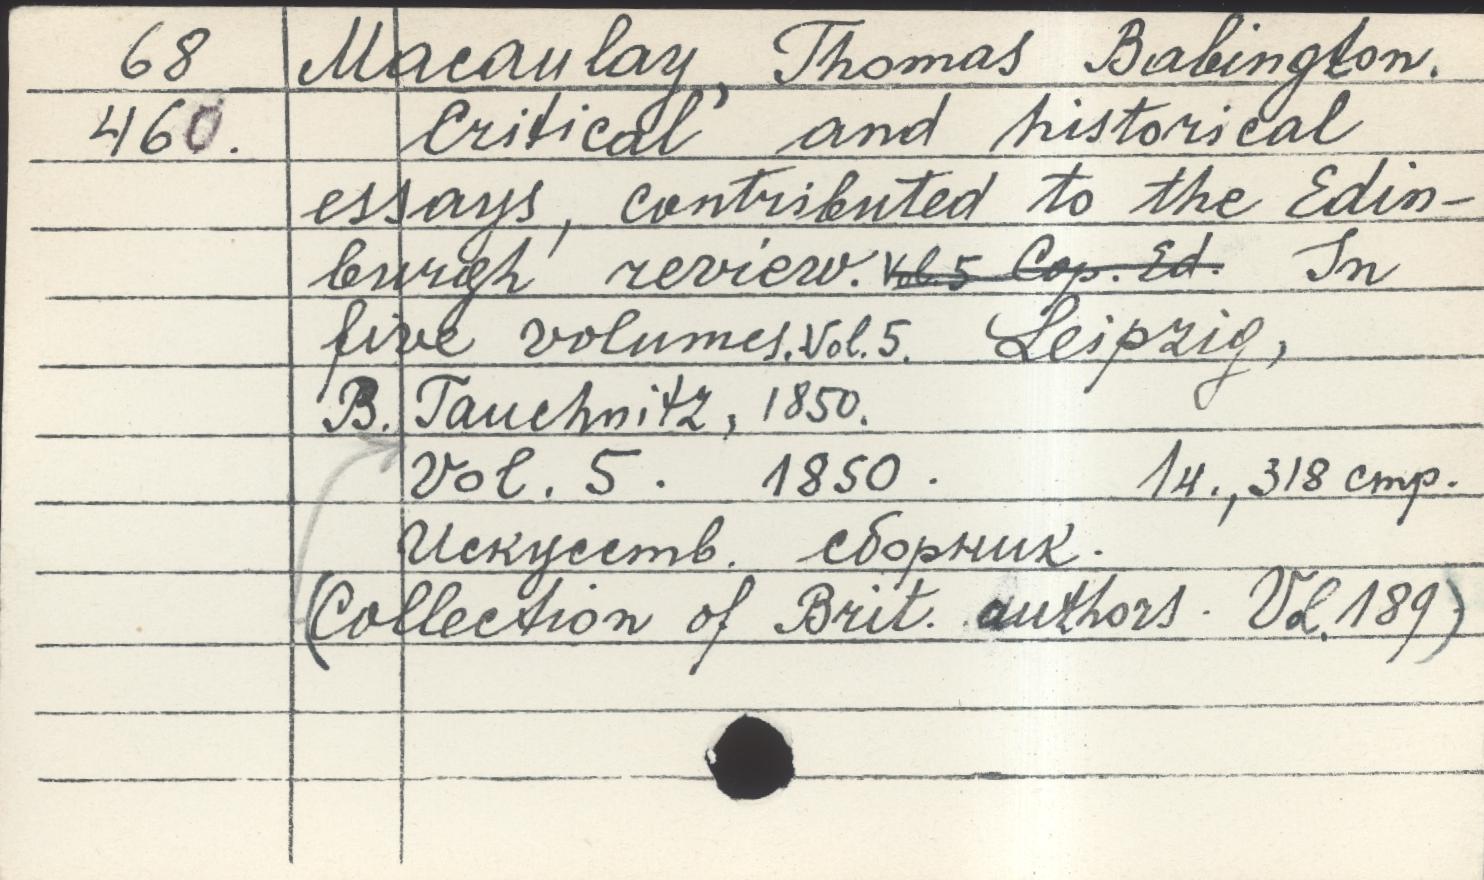 68 Macaulay, Thomas Babington.
460. Critical and historical
essays, contributed to the Edin-
burgh review. Vol. 5 Cop. Ed. In
five volumes. Vol. 5. Leipzig,
B. Tauchnitz, 1850.
Vol. 5. 1850. 14., 318 стр.
Искусств. сборник.
(Collection of Brit. authors. Vol. 189)